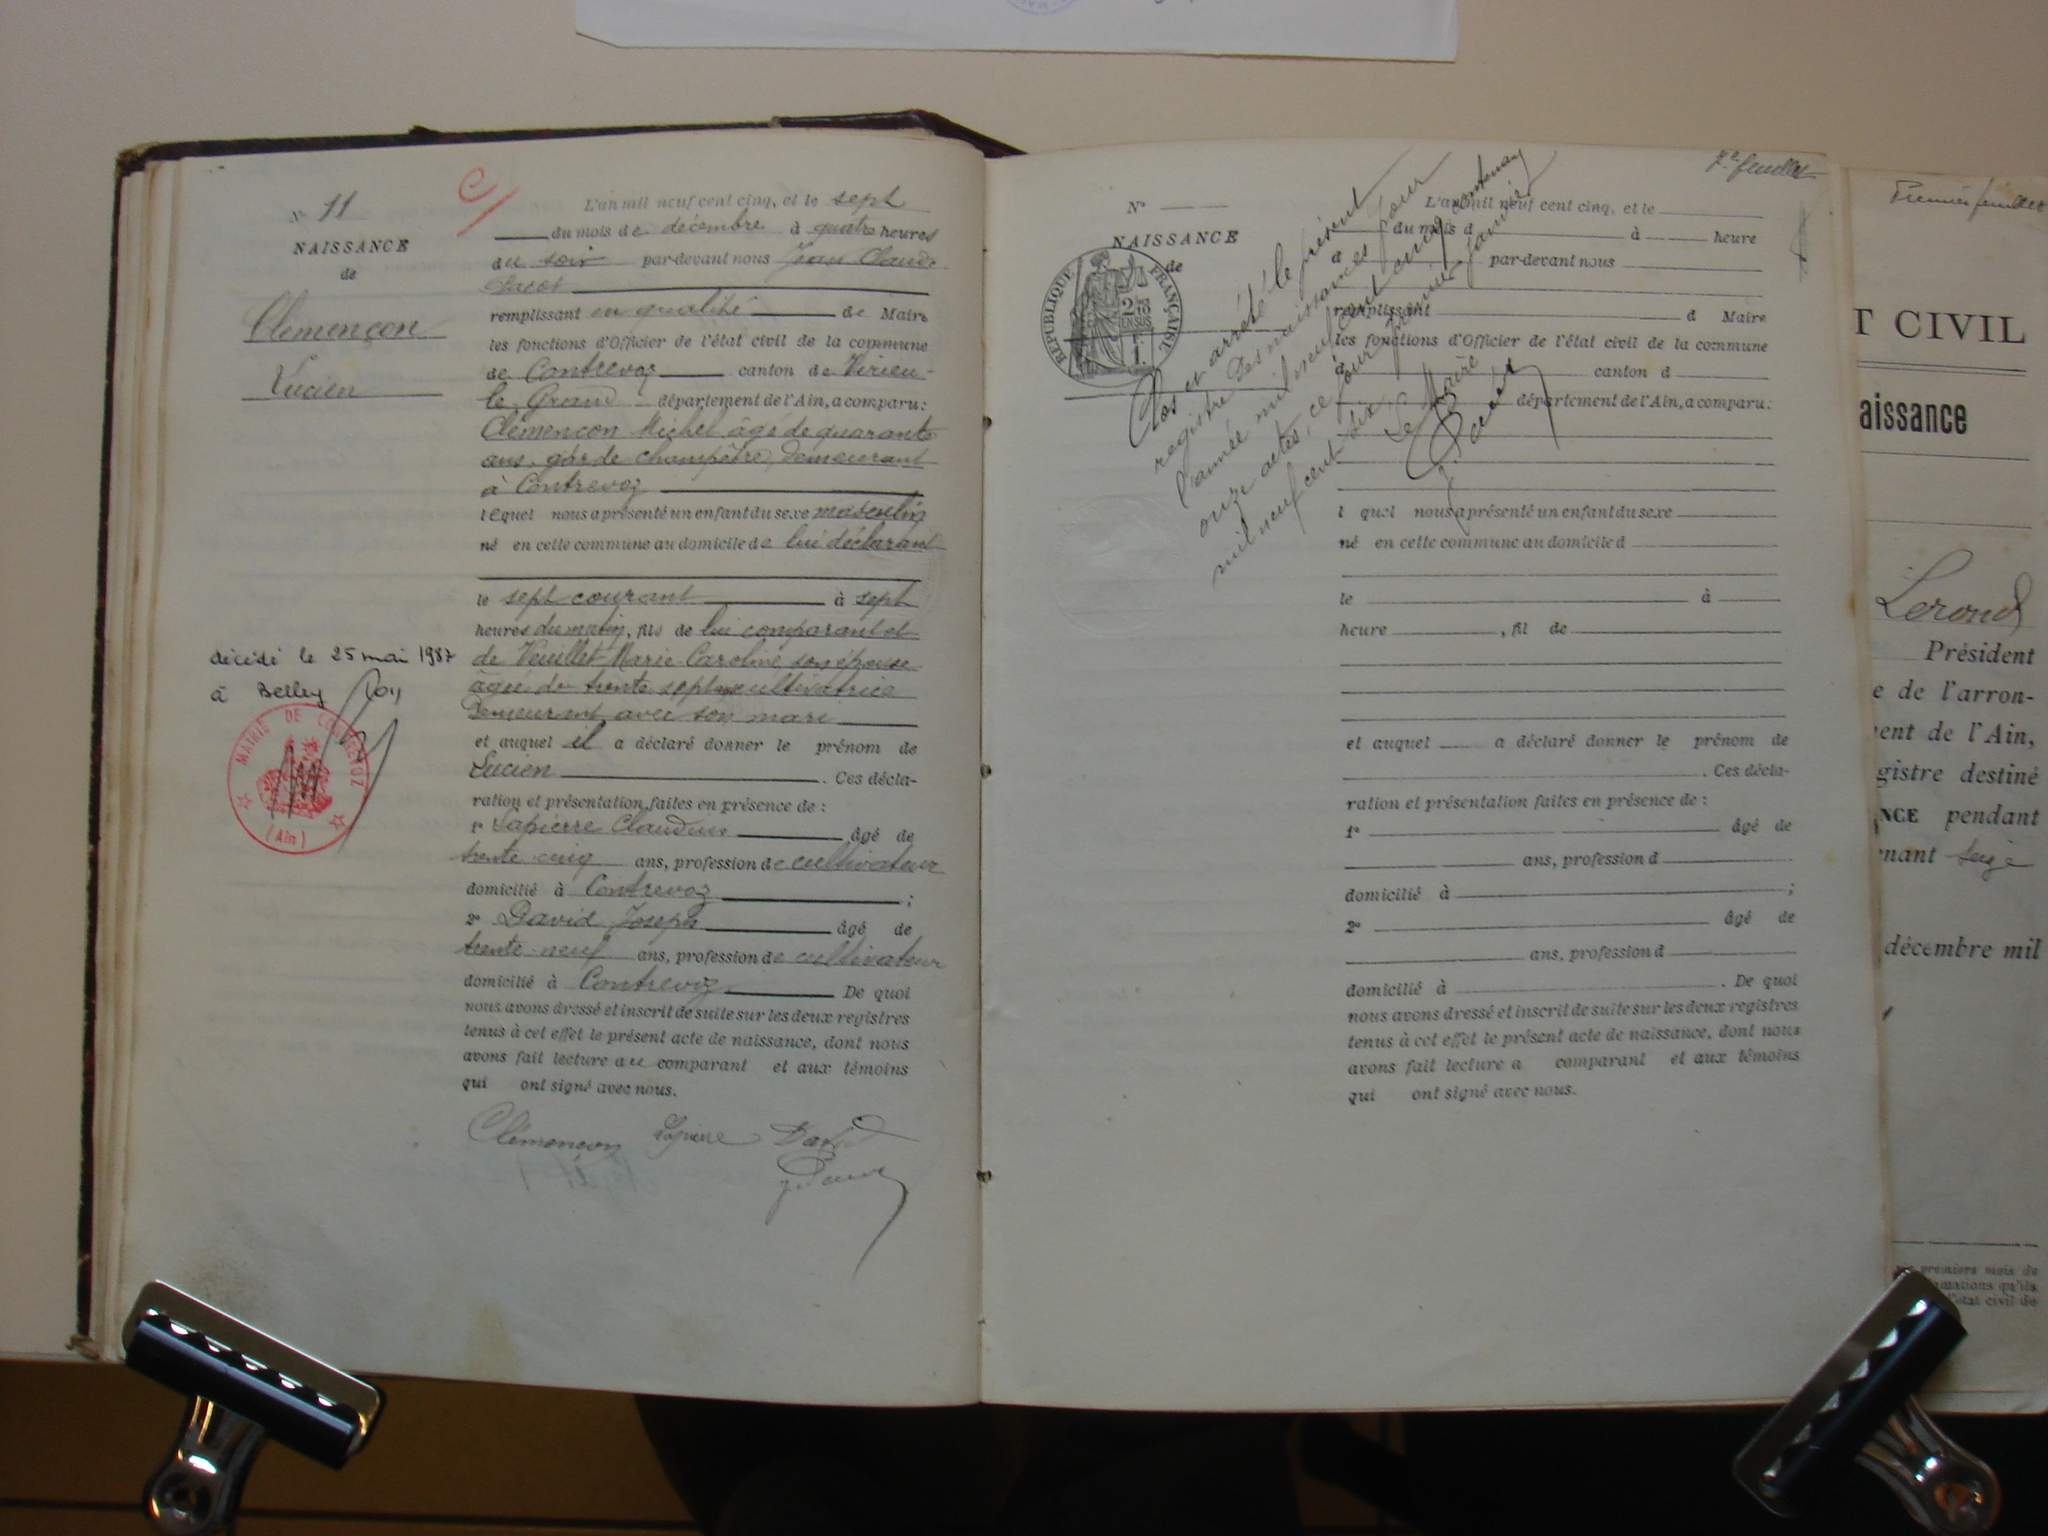 N° 11
NAISSANCE
de
Clémençon
Lucien
décédé le 25 mai 1987
à Belley
MAIRIE DE CONTREVOZ
(Ain)
L'an mil neuf cent cinq, et le sept
du mois de décembre à quatre heures
du soir par-devant nous Jean Claude
remplissant en qualité de Maire
les fonctions d'Officier de l'état civil de la commune
de Contrevoz canton de Virieu-
le Grand département de l'Ain, a comparu:
Clémençon Michel âgé de quarante
ans, garde champêtre, demeurant
à Contrevoz
lequel nous a présenté un enfant du sexe masculin
né en cette commune au domicile de lui déclarant
le sept courant à sept
heures du matin, fils de lui comparant et
de Veuillet Marie Caroline, son épouse
âgée de trente sept ans cultivatrice
Demeurant avec son mari
et auquel il a déclaré donner le prénom de
Lucien. Ces décla-
ration et présentation faites en présence de :
1° Lapierre Claudius âgé de
trente cinq ans, profession de cultivateur
domicilié à Contrevoz ;
2° David Joseph âgé de
trente-neuf ans, profession de cultivateur
domicilié à Contrevoz De quoi
nous avons dressé et inscrit de suite sur les deux registres
tenus à cet effet le présent acte de naissance, dont nous
avons fait lecture au comparant et aux témoins
qui ont signé avec nous.
Clémençon Lapierre David
7e feuillet
N°
NAISSANCE
de
RÉPUBLIQUE FRANÇAISE
2/10
EN SUS
1 F.
Clos et arrêté le présent
registre Des naissances pour
l'année mil neuf cent cinq contenant
onze actes, ce jour premier janvier
mil neuf cent six
Le Maire
L'an mil neuf cent cinq, et le
du mois d à heure
d par-devant nous
remplissant d Maire
les fonctions d'Officier de l'état civil de la commune
d canton d
département de l'Ain, a comparu:
l quel nous a présenté un enfant du sexe
né en cette commune au domicile d
le à
heure , fil de
et auquel a déclaré donner le prénom de
. Ces décla-
ration et présentation faites en présence de :
1° âgé de
ans, profession d
domicilié à ;
2° âgé de
ans, profession d
domicilié à . De quoi
nous avons dressé et inscrit de suite sur les deux registres
tenus à cet effet le présent acte de naissance, dont nous
avons fait lecture a comparant et aux témoins
qui ont signé avec nous.
Premier feuillet
T CIVIL
aissance
Lerond
Président
e de l'arron-
ent de l'Ain,
gistre destiné
NCE pendant
nant seize
décembre mil
premiers mois de
amations qu'ils
l'état civil de